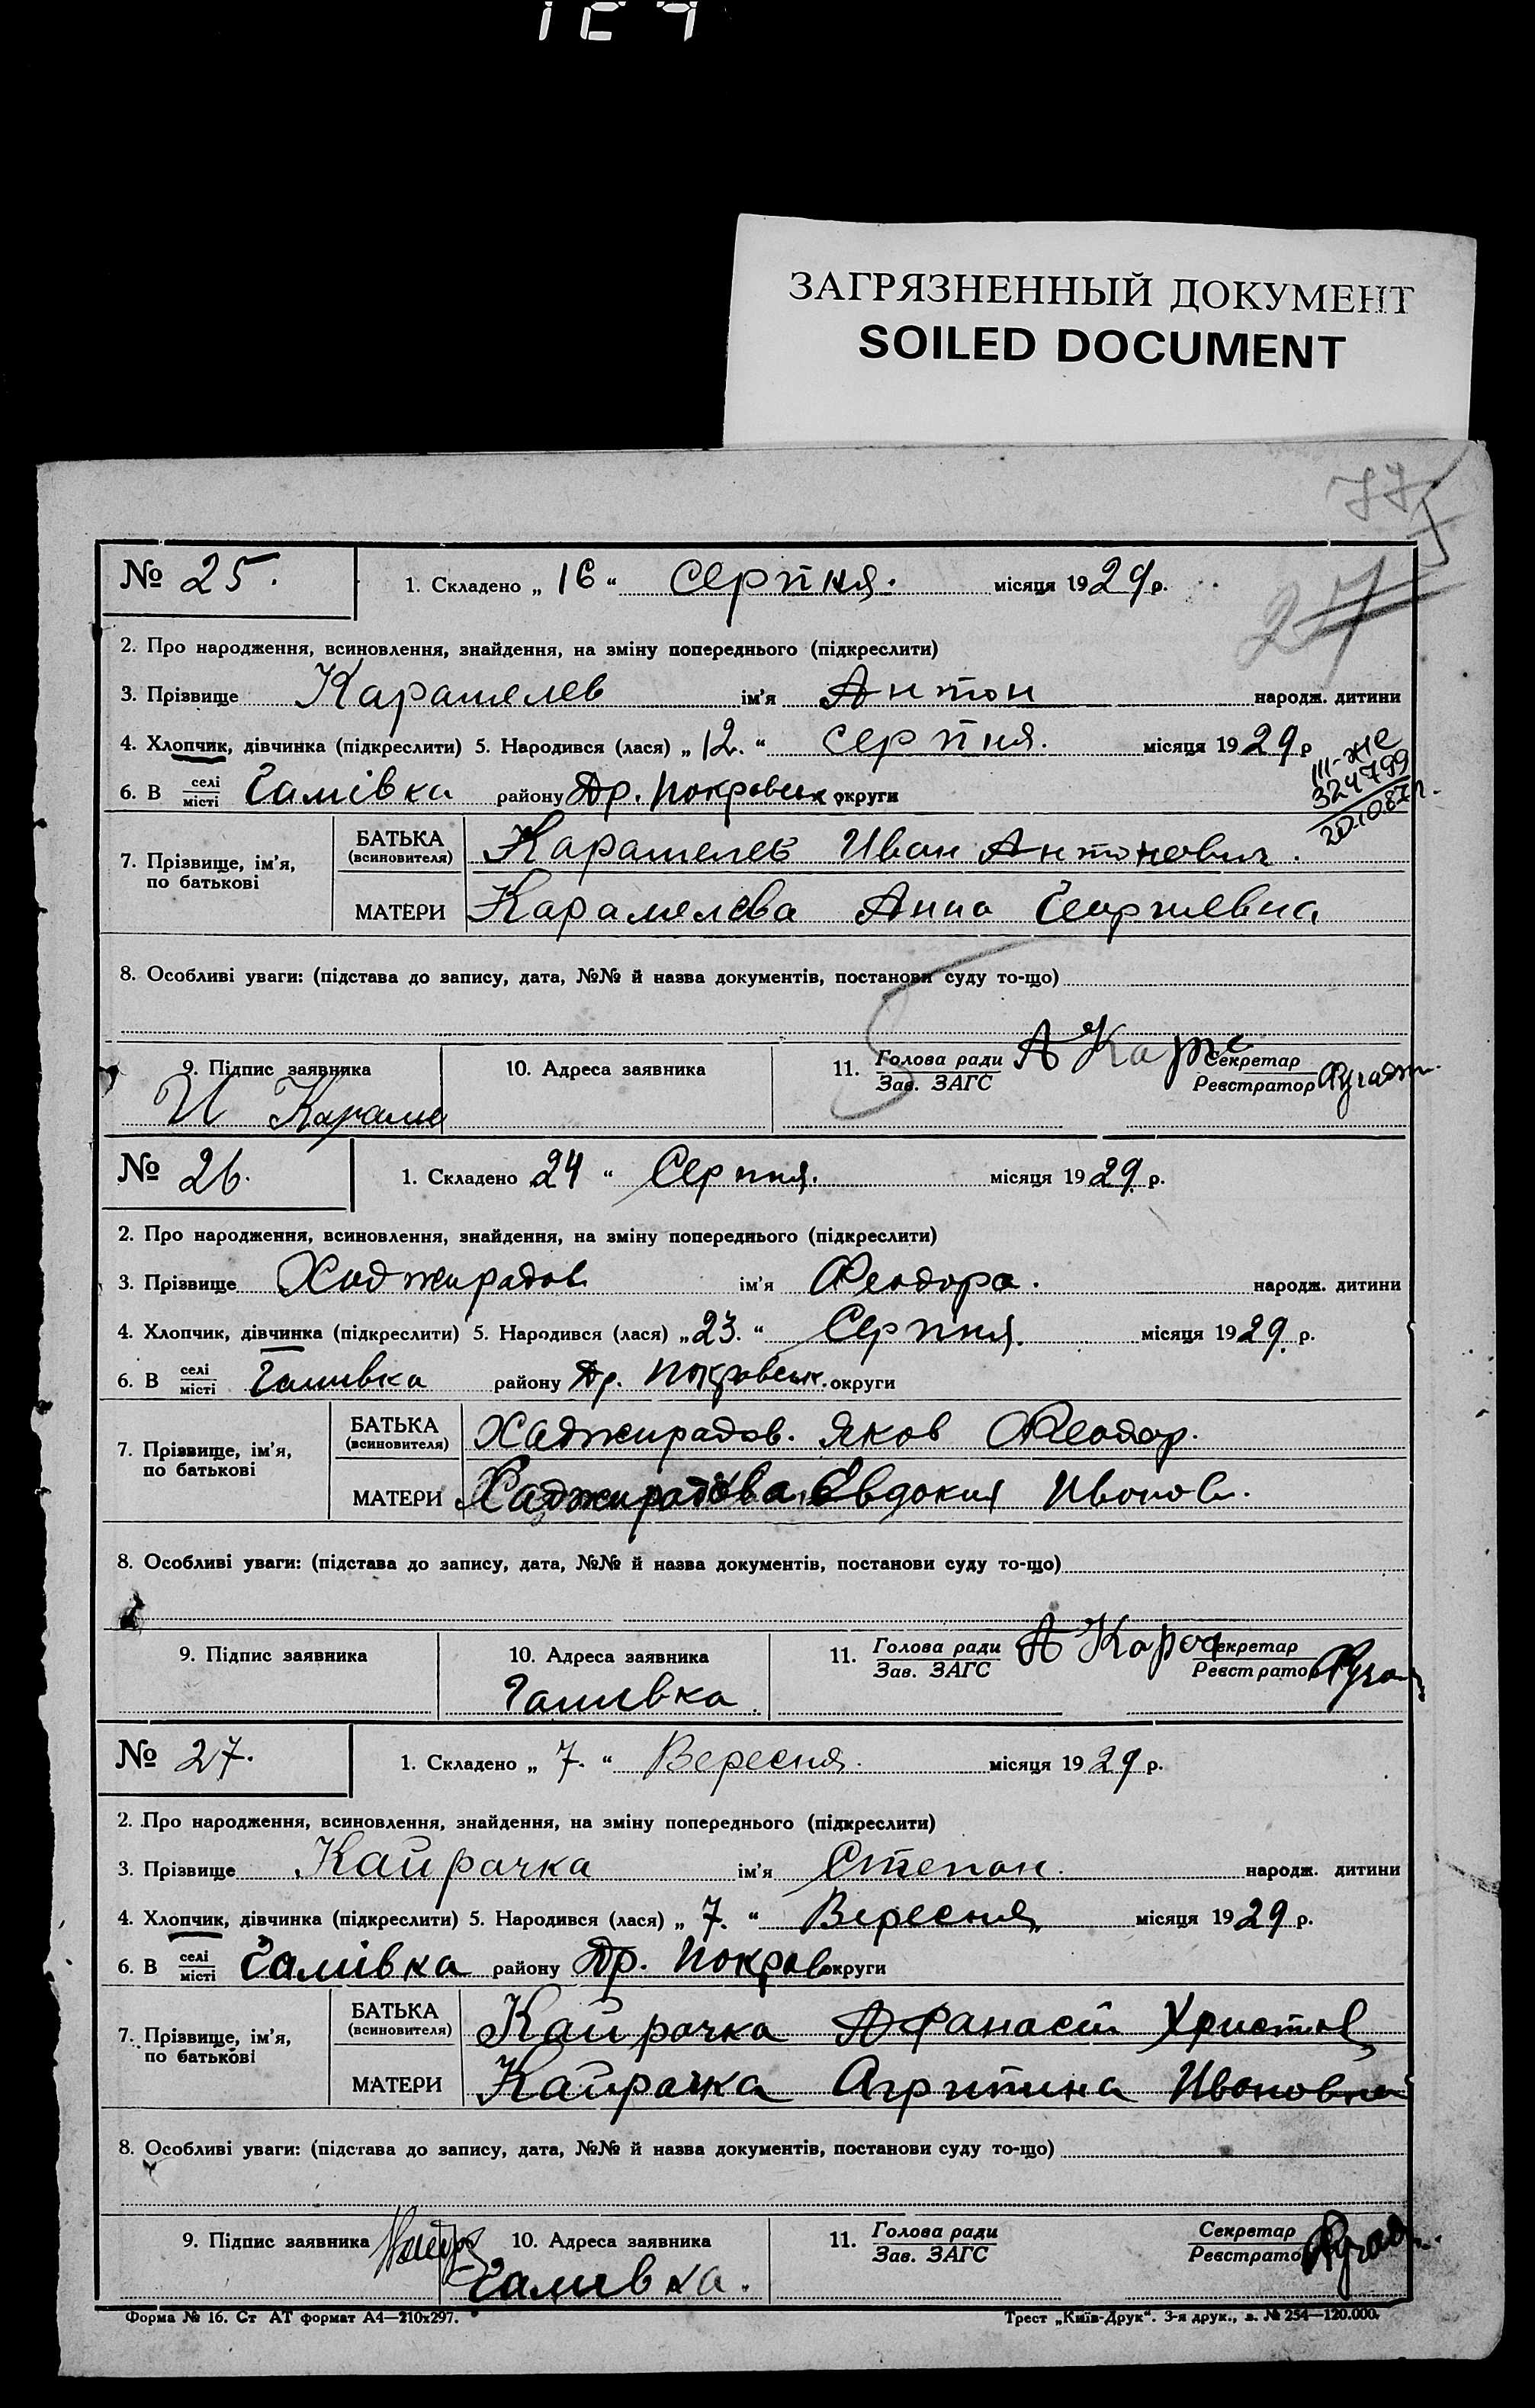 ЗАГРЯЗНЕННЫЙ ДОКУМЕНТ
SOILED DOCUMENT
77
27
№ 25. 1. Складено „ 16 “ Серпня. місяця 1929 р.
2. Про народження, всиновлення, знайдення, на зміну попереднього (підкреслити)
3. Прізвище Карамелев ім'я Антон народж. дитини
4. Хлопчик, дівчинка (підкреслити) 5. Народився (лася) „ 12. “ серпня. місяця 1929 р
6. В селі місті Гамівка району Др. Покровськ округи
III-ЖС
324799
20.10.87г.
7. Прізвище, ім'я, по батькові
БАТЬКА (всиновителя) Карамелев Иван Антонович.
МАТЕРИ Карамелева Анна Георгиевна
8. Особливі уваги: (підстава до запису, дата, №№ й назва документів, постанови суду то-що)
9. Підпис заявника 10. Адреса заявника 11. Голова ради Зав. ЗАГС А Кара Секретар Реєстратор
И Караме
№ 26. 1. Складено 24 “ Серпня. місяця 1929. р.
2. Про народження, всиновлення, знайдення, на зміну попереднього (підкреслити)
3. Прізвище Хаджирадов ім'я Феодора. народж. дитини
4. Хлопчик, дівчинка (підкреслити) 5. Народився (лася) „ 23. “ Серпня. місяця 1929. р.
6. В селі місті Гамивка району Др. Покровськ. округи
7. Прізвище, ім'я, по батькові
БАТЬКА (всиновителя) Хаджирадов. Яков Феодор.
МАТЕРИ Хаджирадова Евдокия Иванов.
8. Особливі уваги: (підстава до запису, дата, №№ й назва документів, постанови суду то-що)
9. Підпис заявника 10. Адреса заявника 11. Голова ради Зав. ЗАГС А Кара Секретар Реєстратор
Гамивка.
№ 27. 1. Складено „ 7. “ Вересня. місяця 1929 р.
2. Про народження, всиновлення, знайдення, на зміну попереднього (підкреслити)
3. Прізвище Кайрачка ім'я Степан. народж. дитини
4. Хлопчик, дівчинка (підкреслити) 5. Народився (лася) „ 7. “ Вересня місяця 1929 р.
6. В селі місті Гамівка району Др. Покров округи
7. Прізвище, ім'я, по батькові
БАТЬКА (всиновителя) Кайрачка Афанасій Христов
МАТЕРИ Кайрачка Агрипина Ивановна
8. Особливі уваги: (підстава до запису, дата, №№ й назва документів, постанови суду то-що)
9. Підпис заявника 10. Адреса заявника 11. Голова ради Зав. ЗАГС Секретар Реєстратор
Гамивка.
Форма № 16. Ст АТ формат А4—210х297. Трест „Київ-Друк“. 3-я друк., з. № 254—120.000.